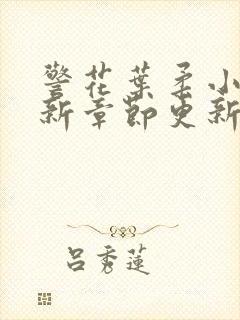 警花葉柔小
新章節更新
呂秀蓮